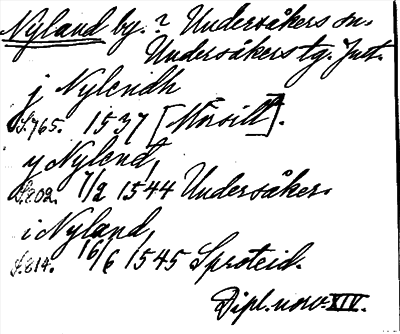 Nyland by. i Undersåkers sn.
Undersåkers tg. Jmt.
j Nylendh
S.765. 1537 [Mörsill].
y Nylend,
S.802. 7/2 1544 Undersåker.
i Nyland,
S.814. 16/6 1545 Sproteid.
Dipl. norv. XIV.